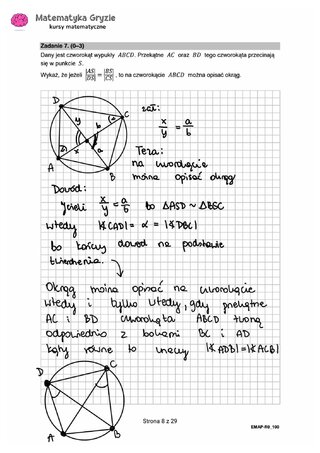 Matematyka Gryzie
kursy matematyczne
Zadanie 7. (0–3)
Dany jest czworokąt wypukły ABCD. Przekątne AC oraz BD tego czworokąta przecinają
się w punkcie S.
Wykaż, że jeżeli |AS|/|DS| = |BS|/|CS|, to na czworokącie ABCD można opisać okrąg.
D
C
y
b
x
a
A
B
zał:
x/y = a/b
Teza:
na czworokącie
można opisać okrąg
Dowód:
Jeżeli x/y = a/b to ΔASD ~ ΔBSC
wtedy |∢CAD| = α = |∢DBC|
to kończy dowód na podstawie
twierdzenia.
Okrąg można opisać na czworokącie
wtedy i tylko wtedy, gdy przekątne
AC i BD czworokąta ABCD tworzą
odpowiednio z bokami BC i AD
kąty równe to znaczy |∢ADB|=|∢ACB|
D
C
A
B
Strona 8 z 29
EMAP-R0_100